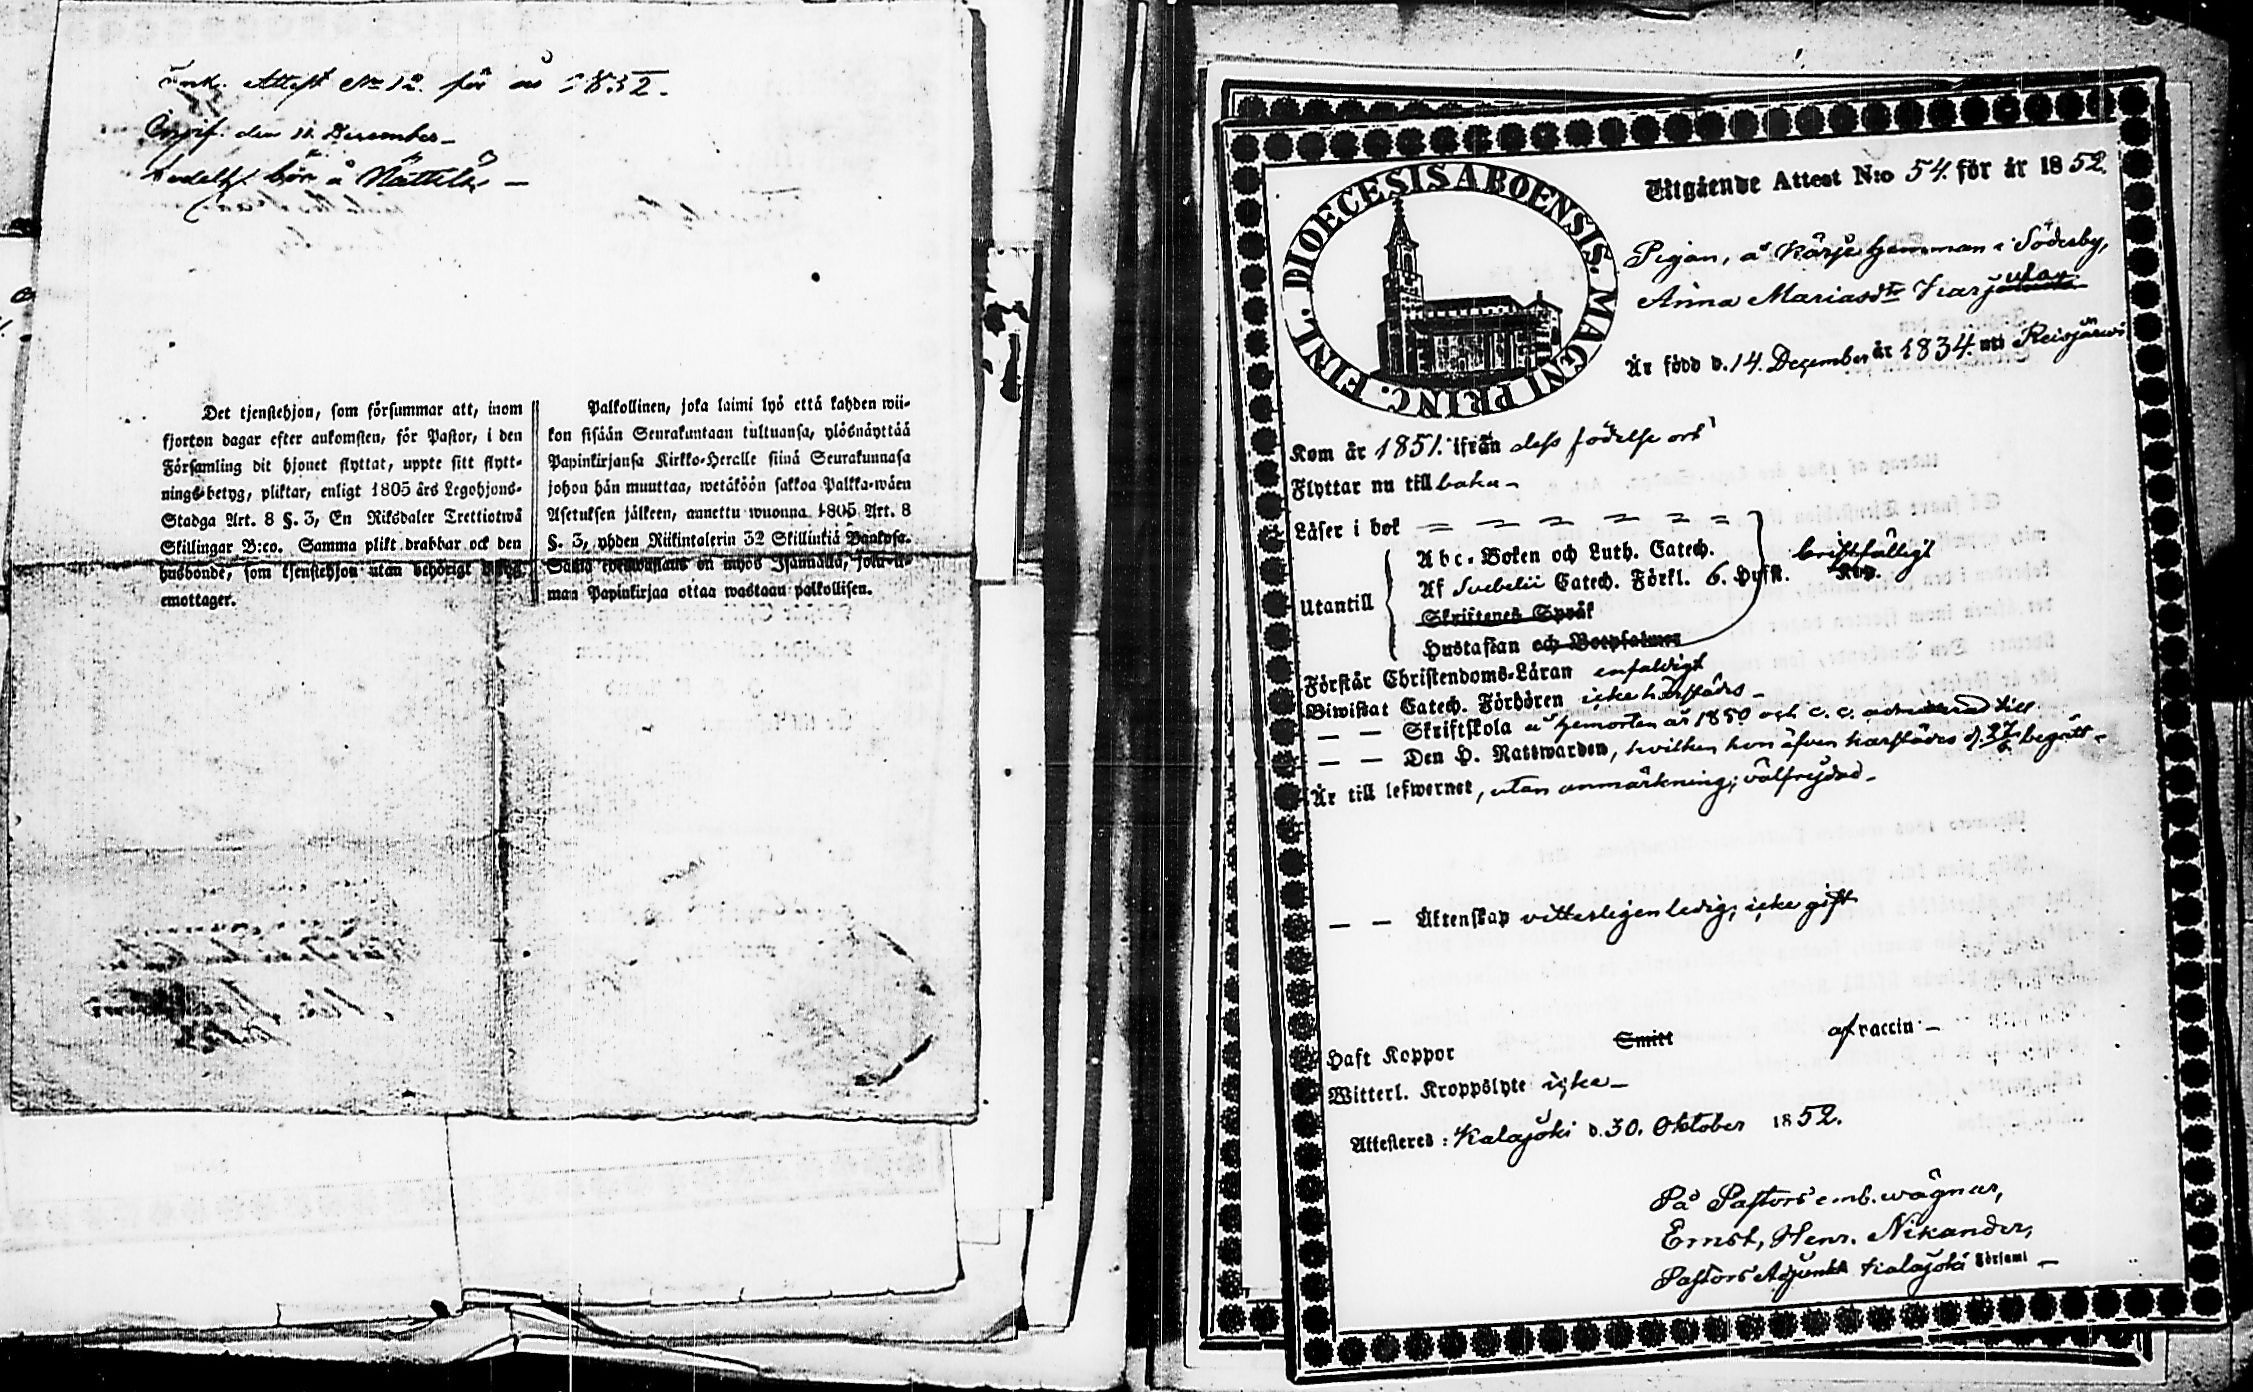 Ink. Attest No 12. för år 1852.
Uppvis. den 11. December
bör å Nättelä
Det tjenstehjon, som försummar att, inom
fjorton dagar efter ankomsten, för Pastor, i den
Församling dit hjonet flyttat, uppte sitt flytt-
nings-betyg, pliktar, enligt 1805 års Legohjons-
Stadga Art. 8 §. 3, En Riksdaler Trettiotwå
Skillingar B:co. Samma plikt drabbar ock den
husbonde, som tjenstehjon utan behörigt
emottager.
Palkollinen, joka laimi lyö että kahden wii-
kon sisään Seurakuntaan tultuansa, ylösnäyttää
Papinkirjansa Kirkko-Heralle siinä Seurakunnasa
johon hän muuttaa, wetäköön sakkoa Palkka-wäen
Asetuksen jälkeen, annettu wuonna 1805 Art. 8
§. 3, yhden Riikintalerin 32 Skillinkiä Bankosa.
Sama edeswastaus on myös Isännällä, joka il-
man Papinkirjaa ottaa wastaan palkollisen.
DIOECESIS ABOENSIS. MAGNI PRINC. FINL.
Utgående Attest N:o 54. för år 1852.
Pigan, å Kärje hemman i Söderby,
Anna Mariasdr Karjulay
Är född d. 14. December år 1834. uti Reisjärwi
Kom år 1851. ifrån dess födelse ort
Flyttar nu till baka -
Läser i bok
Abc-Boken och Luth. Catech.
Utantill
Af Svebelii Catech. Förkl. 6. Hufst.
bristfälligt
Skriftenes Språk
Hustaflan och Botpsalmer
Förstår Christendoms-Läran enfaldigt
Biwistat Catech. Förhören icke härstädes -
— — Skriftskola å hemorten år 1850 och admitterad till
— — Den H. Nattwarden, hvilken hon äfven härstädes d. 27/6 begått -
Är till lefwernet, utan anmärkning; välfrejdad -
— — Äktenskap vitterligen ledig; icke gift
Haft Koppor Smitt af vaccin -
Witterl. Kroppslyte icke -
Attesteres: Kalajoki d. 30. Oktober 1852.
På Pastors emb. wägnar,
Ernst, Henr. Nikander,
Pastors Adjunkt Kalajoki Församl -